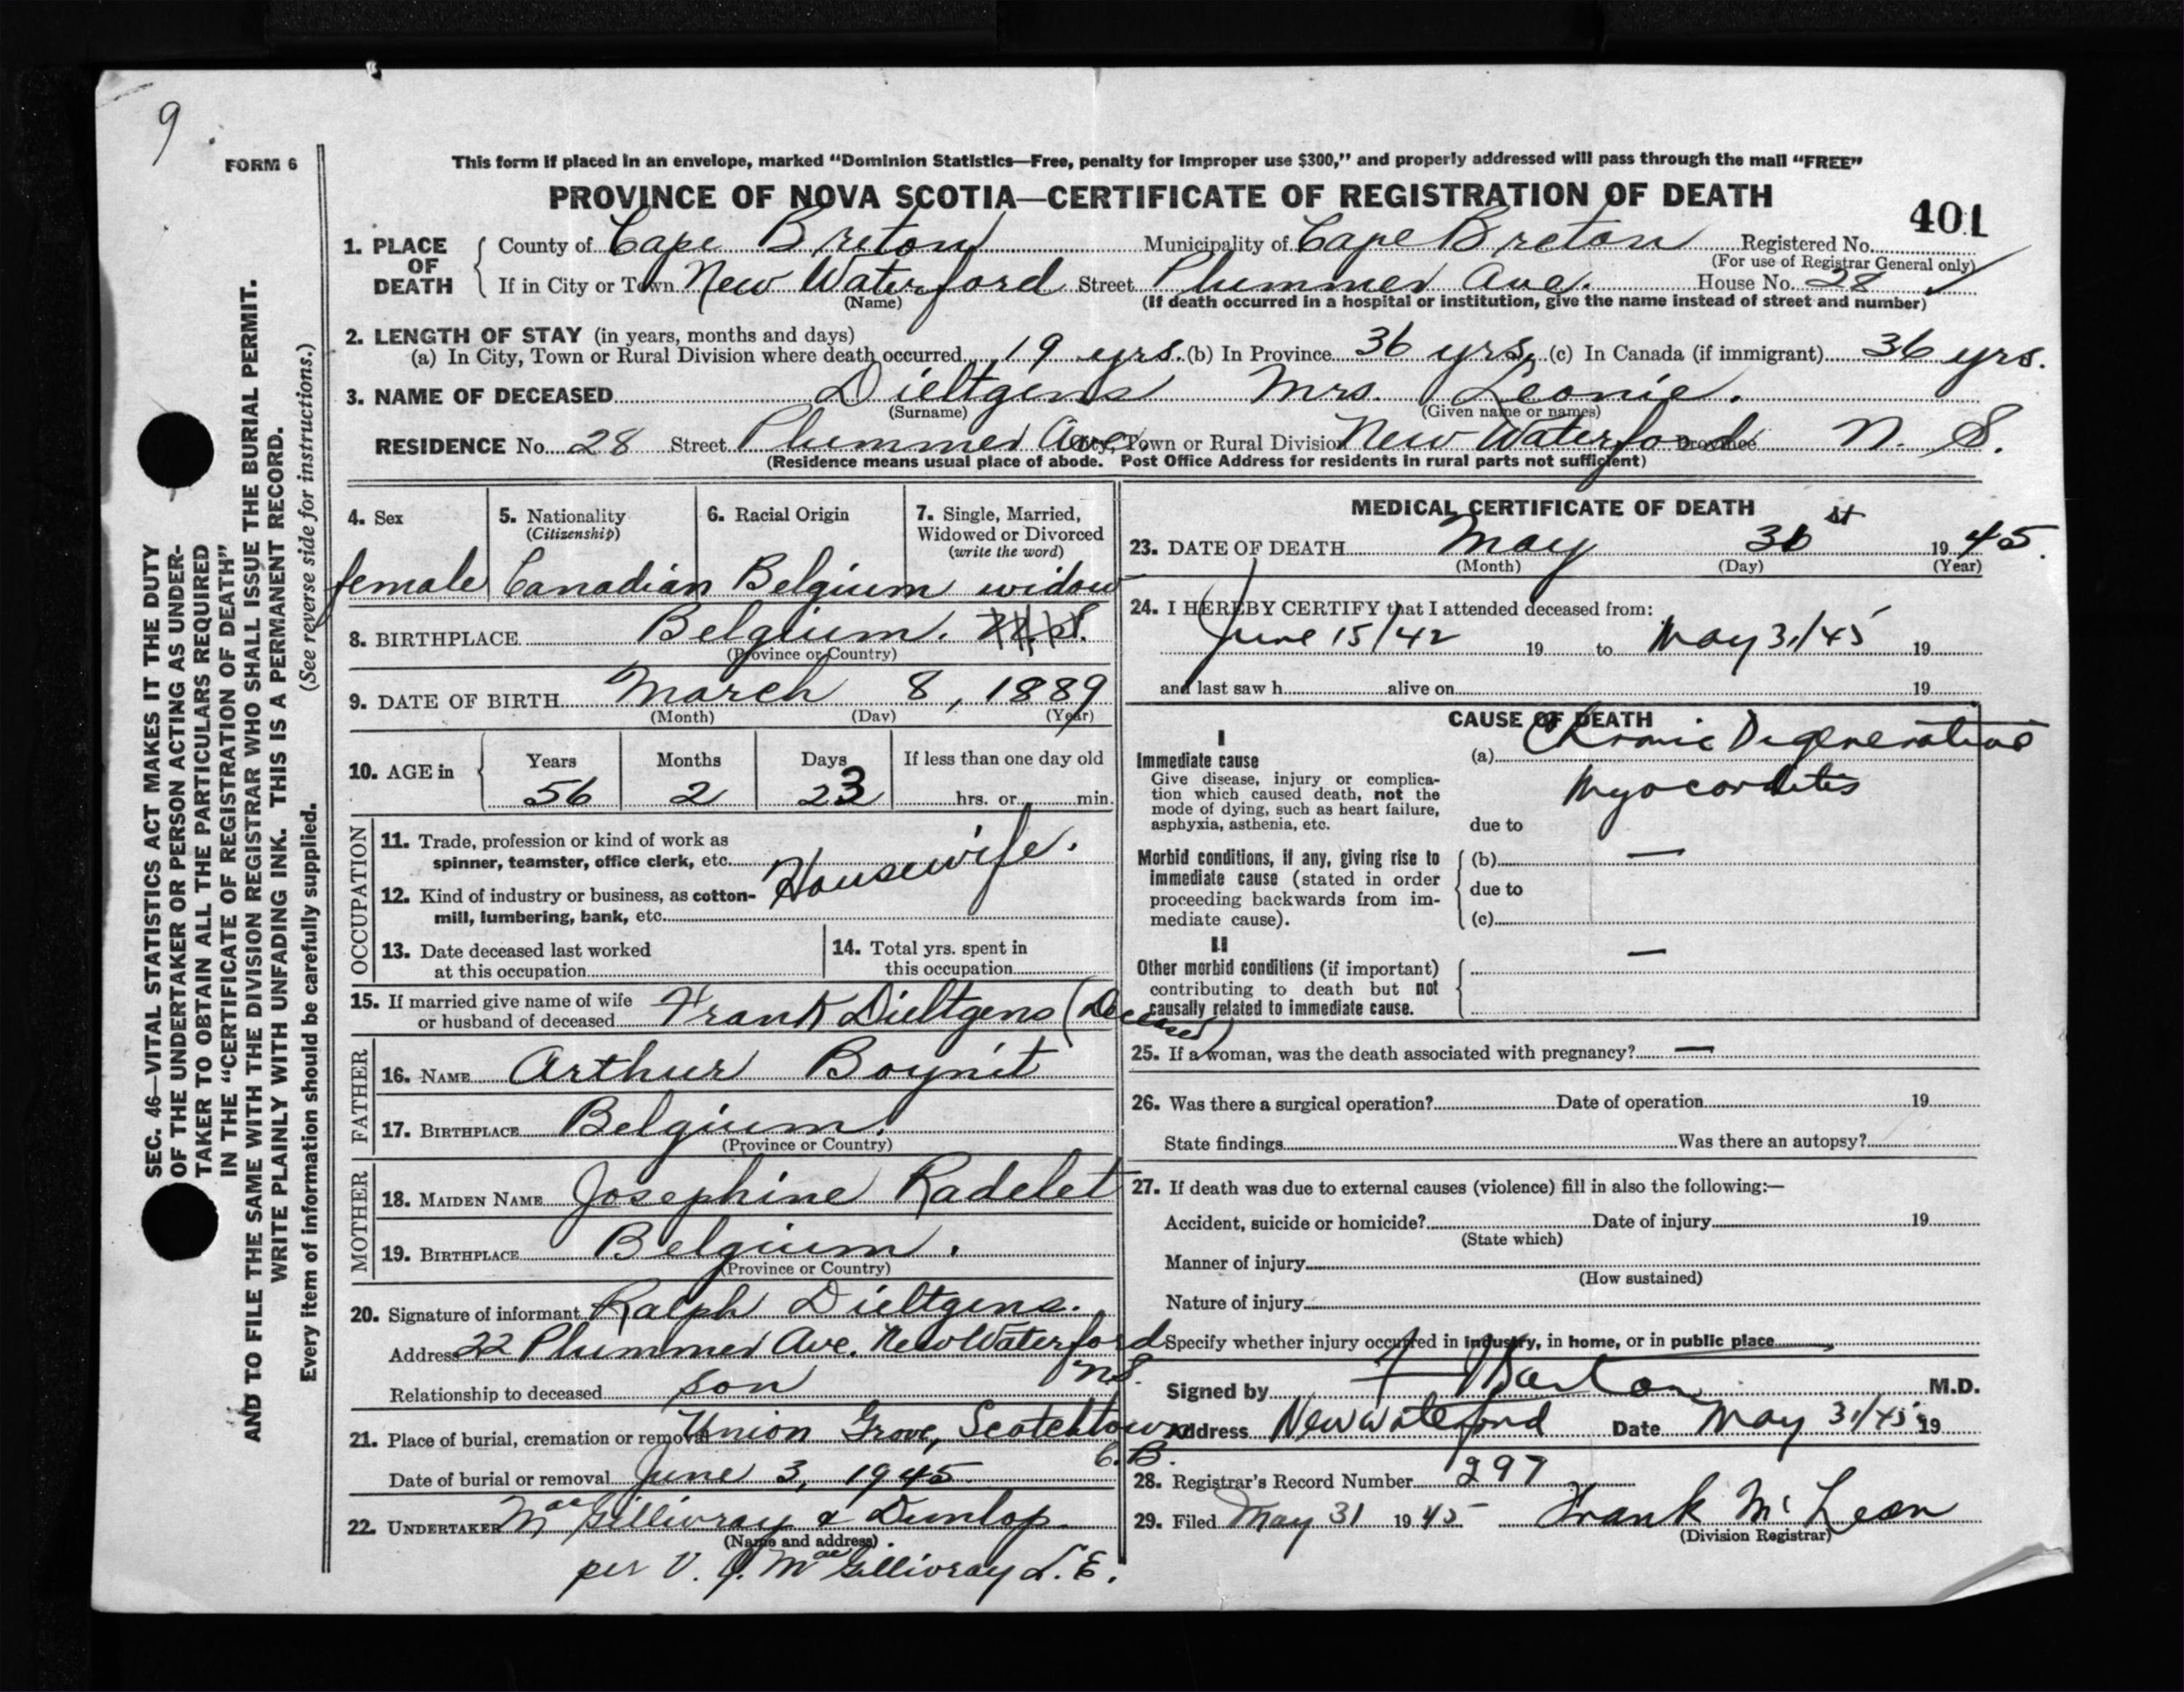 9
FORM 6
This form if placed in an envelope, marked "Dominion Statistics—Free, penalty for improper use $300," and properly addressed will pass through the mail "FREE"
PROVINCE OF NOVA SCOTIA—CERTIFICATE OF REGISTRATION OF DEATH
401
1. PLACE OF DEATH County of Cape Breton Municipality of Cape Breton Registered No.
(For use of Registrar General only)
If in City or Town New Waterford Street Plummer Ave. House No. 28
(Name) (If death occurred in a hospital or institution, give the name instead of street and number)
2. LENGTH OF STAY (in years, months and days)
(a) In City, Town or Rural Division where death occurred 19 yrs. (b) In Province 36 yrs. (c) In Canada (if immigrant) 36 yrs.
3. NAME OF DECEASED Dieltgens Mrs. Leonie.
(Surname) (Given name or names)
RESIDENCE No. 28 Street Plummer Ave. City, Town or Rural Division New Waterford Province N. S.
(Residence means usual place of abode. Post Office Address for residents in rural parts not sufficient)
4. Sex
female
5. Nationality
(Citizenship)
Canadian
6. Racial Origin
Belgium
7. Single, Married,
Widowed or Divorced
(write the word)
widow
8. BIRTHPLACE Belgium. N. S.
(Province or Country)
9. DATE OF BIRTH March 8, 1889
(Month) (Day) (Year)
10. AGE in Years Months Days If less than one day old
56 2 23 hrs. or min.
OCCUPATION
11. Trade, profession or kind of work as
spinner, teamster, office clerk, etc. Housewife.
12. Kind of industry or business, as cotton-
mill, lumbering, bank, etc.
13. Date deceased last worked
at this occupation
14. Total yrs. spent in
this occupation
15. If married give name of wife
or husband of deceased Frank Dieltgens (Deceased)
FATHER
16. NAME Arthur Boynit
17. BIRTHPLACE Belgium.
(Province or Country)
MOTHER
18. MAIDEN NAME Josephine Radelet
19. BIRTHPLACE Belgium.
(Province or Country)
20. Signature of informant Ralph Dieltgens.
Address 22 Plummer Ave. New Waterford N.S.
Relationship to deceased son
21. Place of burial, cremation or removal Union Grove, Scotchtown C.B.
Date of burial or removal June 3, 1945
22. UNDERTAKER MacGillivray & Dunlop
(Name and address)
per V. J. MacGillivray L.E.
MEDICAL CERTIFICATE OF DEATH
23. DATE OF DEATH May 31st 1945.
(Month) (Day) (Year)
24. I HEREBY CERTIFY that I attended deceased from:
June 15/42 19 to May 31/45 19
and last saw h alive on 19
CAUSE OF DEATH
I
Immediate cause
Give disease, injury or complica-
tion which caused death, not the
mode of dying, such as heart failure,
asphyxia, asthenia, etc.
(a) Chronic Degenerative
Myocarditis
due to
Morbid conditions, if any, giving rise to
immediate cause (stated in order
proceeding backwards from im-
mediate cause).
(b) —
due to
(c)
II
Other morbid conditions (if important)
contributing to death but not
causally related to immediate cause.
—
25. If a woman, was the death associated with pregnancy? —
26. Was there a surgical operation? Date of operation 19
State findings Was there an autopsy?
27. If death was due to external causes (violence) fill in also the following:—
Accident, suicide or homicide? Date of injury 19
(State which)
Manner of injury
(How sustained)
Nature of injury
Specify whether injury occurred in industry, in home, or in public place
Signed by F Barton M.D.
Address New Waterford Date May 31/45 19
28. Registrar's Record Number 297
29. Filed May 31 1945 Frank McLean
(Division Registrar)
SEC. 46—VITAL STATISTICS ACT MAKES IT THE DUTY
OF THE UNDERTAKER OR PERSON ACTING AS UNDER-
TAKER TO OBTAIN ALL THE PARTICULARS REQUIRED
IN THE "CERTIFICATE OF REGISTRATION OF DEATH"
AND TO FILE THE SAME WITH THE DIVISION REGISTRAR WHO SHALL ISSUE THE BURIAL PERMIT.
WRITE PLAINLY WITH UNFADING INK. THIS IS A PERMANENT RECORD.
Every item of information should be carefully supplied. (See reverse side for instructions.)